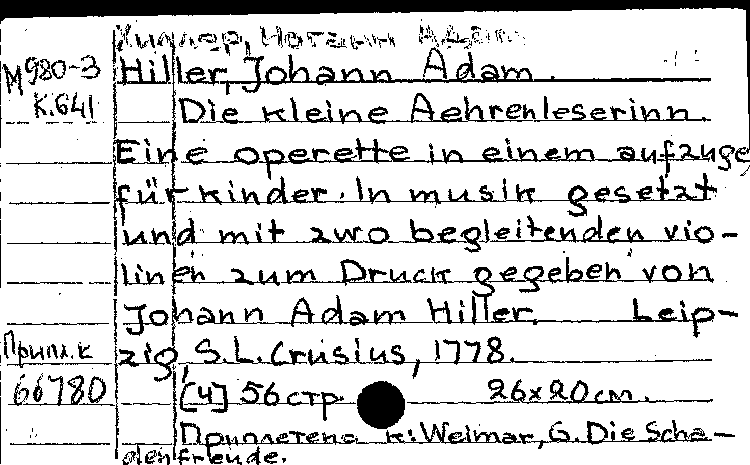 Хиллер, Иоганн Адам.
М980-3 Hiller, Johann Adam.
К.641 Die kleine Aehrenleserinn.
Eine operette in einem aufzuge
für kinder. In musik gesetzt
und mit zwo begleitenden vio-
linen zum Druck gegeben von
Johann Adam Hiller. Leip-
Приплк zig, S.L. Crusius, 1778.
66780 [4] 56 стр. 26x20 см.
Приплетено к: Weimar, G. Die Scha-
denfreude.